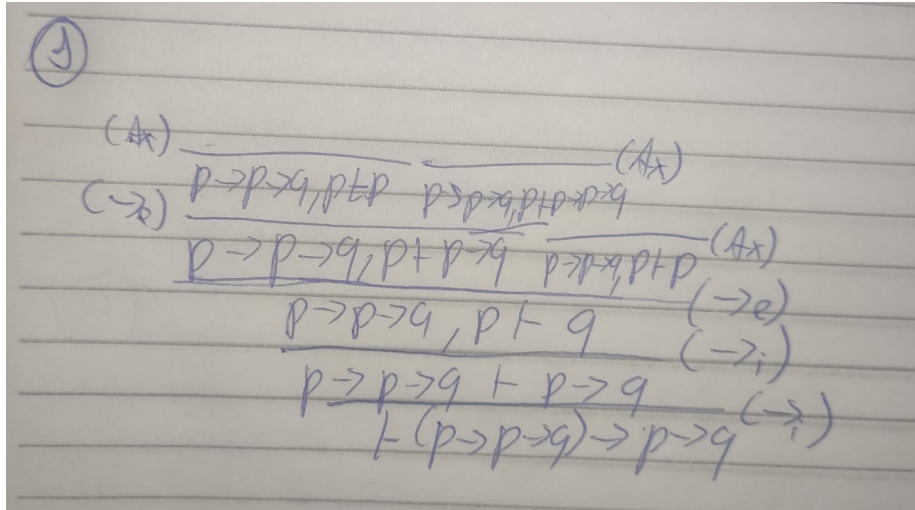 ①
(Ax) (Ax)
p→p→q, p ⊢ p p→p→q, p ⊢ p→p→q
(→e) (Ax)
p→p→q, p ⊢ p→q p→p→q, p ⊢ p
(→e)
p→p→q, p ⊢ q
(→i)
p→p→q ⊢ p→q
(→i)
⊢ (p→p→q)→p→q